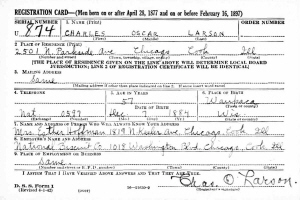 REGISTRATION CARD—(Men born on or after April 28, 1877 and on or before February 16, 1897)
SERIAL NUMBER 1. NAME (Print) ORDER NUMBER
U 874 CHARLES OSCAR LARSON
(First) (Middle) (Last)
2. PLACE OF RESIDENCE (Print)
2501 N. Parkside Ave Chicago Cook Ill
[THE PLACE OF RESIDENCE GIVEN ON THE LINE ABOVE WILL DETERMINE LOCAL BOARD
JURISDICTION; LINE 2 OF REGISTRATION CERTIFICATE WILL BE IDENTICAL]
3. MAILING ADDRESS
Same
4. TELEPHONE 5. AGE IN YEARS 6. PLACE OF BIRTH
57 Waupaca
DATE OF BIRTH
Nat 0597 Dec 1884 Wis
7. NAME AND ADDRESS OF PERSON WHO WILL ALWAYS KNOW YOUR ADDRESS
Mrs. Esther 1819 N Ave, Chicago, Cook Ill
8. EMPLOYER'S NAME AND ADDRESS
National Biscuit Co. 1019 Washington Blvd. Chicago, Cook Ill
9. PLACE OF EMPLOYMENT OR BUSINESS
Same
I AFFIRM THAT I HAVE VERIFIED ABOVE ANSWERS AND THAT THEY ARE TRUE.
D. S. S. Form 1
Chas. O. Larson.